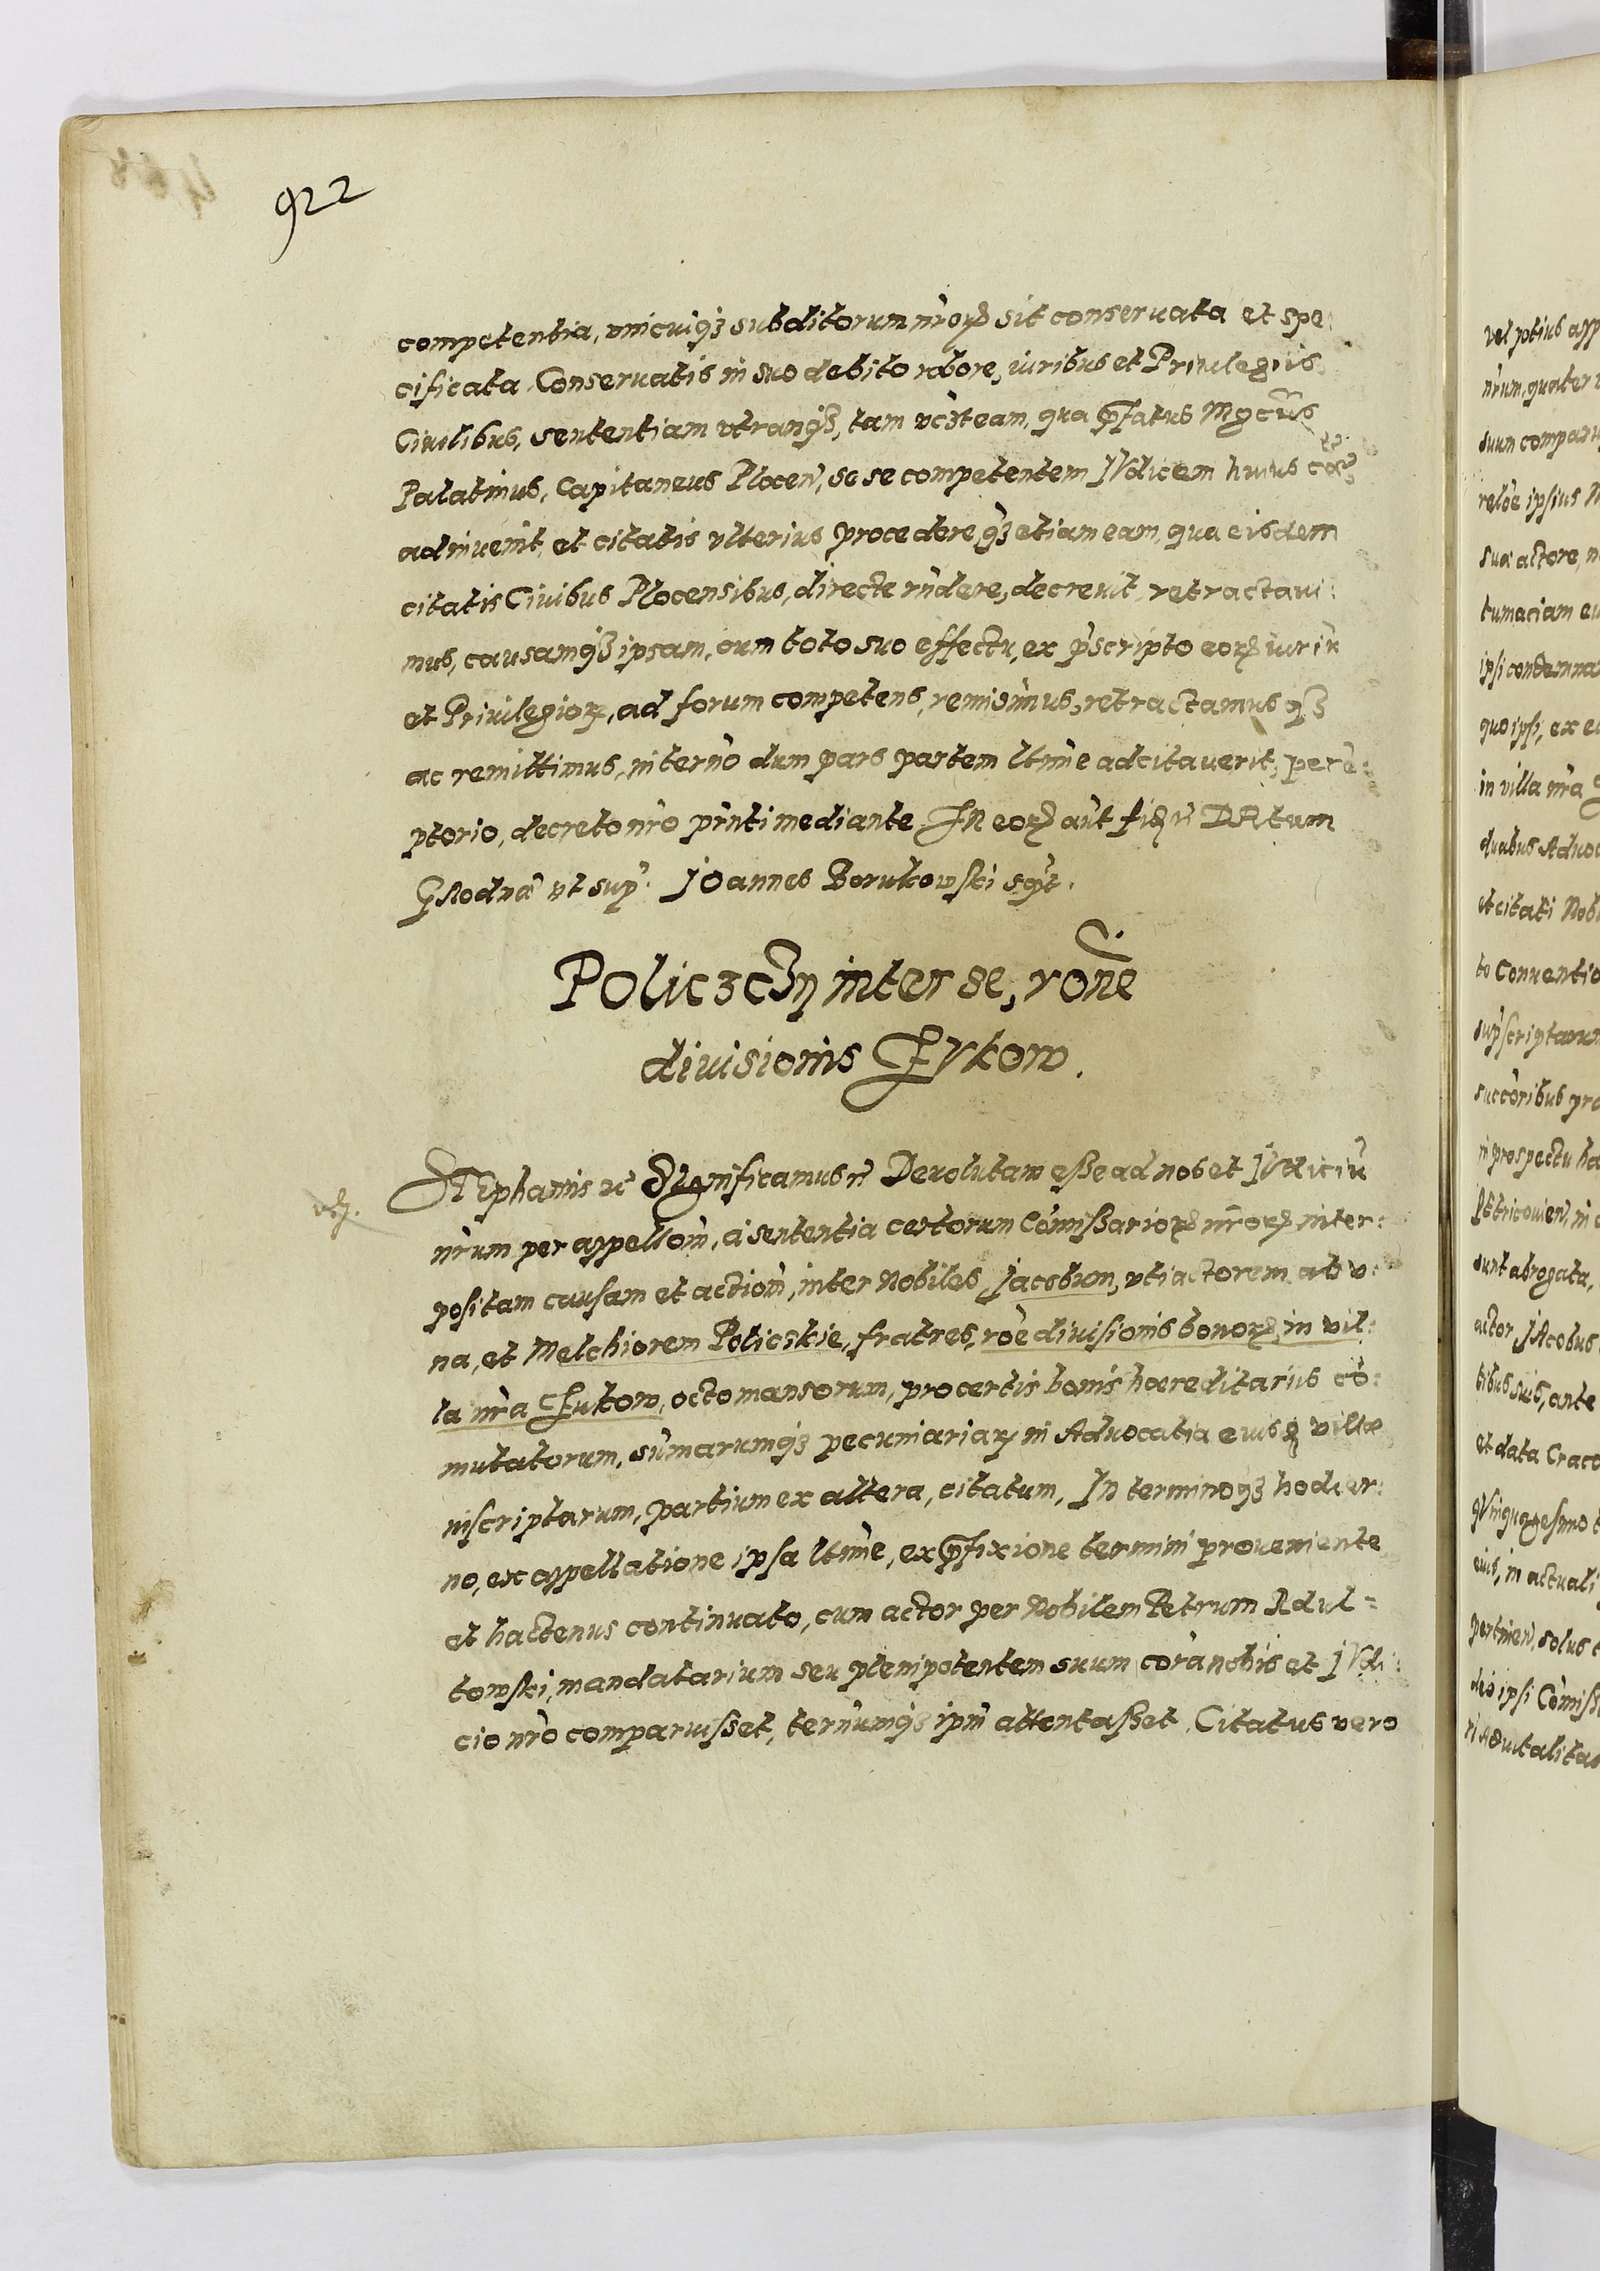 922
competentia, vnicuiqȝ subditorum nr̃orꝫ sit conseruata et spe:
cificata. Conseruatis in suo debito robore, iuribus et Priuilegiis
Ciuilibus, sententiam vtranqȝ, tam vcȝ eam, qua p̃fatus Mgcus
Palatinus, Capitaneus Plocen̄, se se competentem JVdicem huius
adinuenit, et citatis vlterius procedere, qȝ etiam eam, qua eisdem
citatis Ciuibus Plocensibus, directe rñdere, decreuit, retractaui:
mus, causamqȝ ipsam, cum toto suo effectu, ex p̃scripto eorꝫ iuriū
et Priuilegiorꝫ, ad forum competens, remisimus, retractamus qȝ
ac remittimus, in termo dum pars partem ltime adcitauerit, perē:
ptorio, decreto nr̃o pñti mediante. IN eorꝫ aut fidē DAtum
Grodnæ vt sup. JOannes Borukowski sspt.
POliczczȳ inter se, rõne
diuisionis ŁVkow.
STEphanus &c Significamus &c Deuolutam esse ad nos et JVdiciū
nr̃um per appellõm, a sententia certorum Cõmissariorꝫ nr̃orꝫ inter:
positam causam et actiõm, inter Nobiles, Jacobum, vti actorem ab v:
na, et Melchiorem Policskie, fratres, rõe diuisionis bonorꝫ, in vil:
la nr̃a Łukow, octo mansorum, pro certis bonis hæreditariis cõ:
mutatorum, sum̃arumqȝ pecuniariarꝫ in Aduocatia eiusd villæ
inscriptarum, partium ex altera, citatum, In terminoqȝ hodier:
no, ex appellatione ipsa ltime, ex p̃fixione termini proueniente
et hactenus continuato, cum actor per Nobilem Petrum Radul=
towski, mandatarium seu plenipotentem suum, corã nobis et JVdi:
cio nr̃o comparuisset, ternumqȝ ipm̃ attentasset. Citatus vero
vel potius app
nr̃um, quater
suum comparu
relõe ipsius M
sua actore, n
tumaciam eu
ipsi condemna
quo ipsi, ex e
in villa nr̃a
duabus Aduoc
et citati Nob
to Conuentio
supscriptarum
succoribus pro
in prospectu ha
Petricouien̄, in
sunt abrogata,
actor JAcobus
tibus suis, ante
et data Craco
quinquagesimo
eius, in actuali
pertinen̄, solus
dio ipsi Cõmiss
ri Aduitalitat